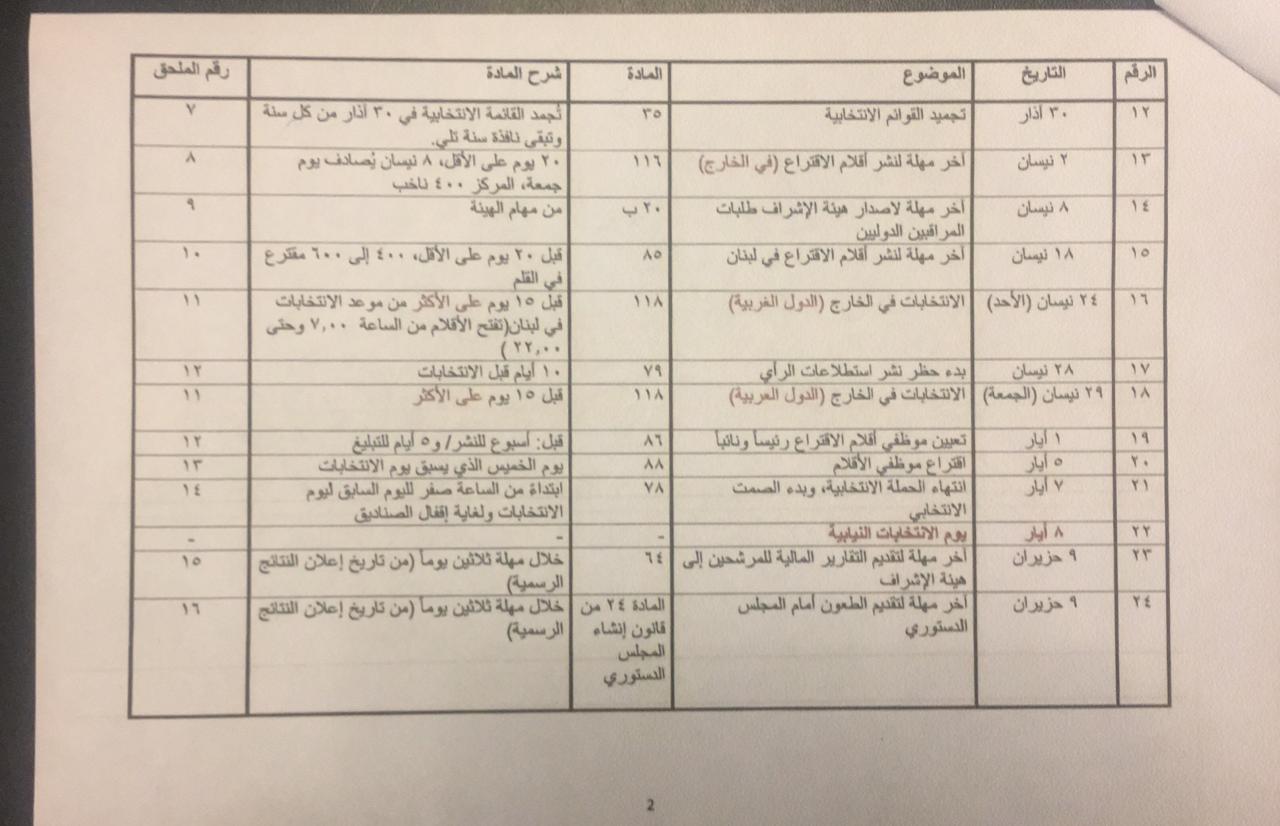 الرقم التاريخ الموضوع المادة شرح المادة رقم الملحق
١٢ ٣٠ آذار تجميد القوائم الانتخابية ٣٥ تُجمد القائمة الانتخابية في ٣٠ آذار من كل سنة ٧
وتبقى نافذة سنة تلي.
١٣ ٢ نيسان آخر مهلة لنشر أقلام الاقتراع (في الخارج) ١١٦ ٢٠ يوم على الأقل، ٨ نيسان يُصادف يوم ٨
جمعة، المركز ٤٠٠ ناخب
١٤ ٨ نيسان آخر مهلة لاصدار هيئة الإشراف طلبات ٢٠ ب من مهام الهيئة ٩
المراقبين الدوليين
١٥ ١٨ نيسان آخر مهلة لنشر أقلام الاقتراع في لبنان ٨٥ قبل ٢٠ يوم على الأقل، ٤٠٠ إلى ٦٠٠ مقترع ١٠
في القلم
١٦ ٢٤ نيسان (الأحد) الانتخابات في الخارج (الدول الغربية) ١١٨ قبل ١٥ يوم على الأكثر من موعد الانتخابات ١١
في لبنان(تفتح الأقلام من الساعة ٧,٠٠ وحتى
٢٢,٠٠ )
١٧ ٢٨ نيسان بدء حظر نشر استطلاعات الرأي ٧٩ ١٠ أيام قبل الانتخابات ١٢
١٨ ٢٩ نيسان (الجمعة) الانتخابات في الخارج (الدول العربية) ١١٨ قبل ١٥ يوم على الأكثر ١١
١٩ ١ أيار تعيين موظفي أقلام الاقتراع رئيساً ونائباً ٨٦ قبل: أسبوع للنشر/ و٥ أيام للتبليغ ١٢
٢٠ ٥ أيار اقتراع موظفي الأقلام ٨٨ يوم الخميس الذي يسبق يوم الانتخابات ١٣
٢١ ٧ أيار انتهاء الحملة الانتخابية، وبدء الصمت ٧٨ ابتداءً من الساعة صفر لليوم السابق ليوم ١٤
الانتخابي الانتخابات ولغاية إقفال الصناديق
٢٢ ٨ أيار يوم الانتخابات النيابية - - -
٢٣ ٩ حزيران آخر مهلة لتقديم التقارير المالية للمرشحين إلى ٦٤ خلال مهلة ثلاثين يوماً (من تاريخ إعلان النتائج ١٥
هيئة الإشراف الرسمية)
٢٤ ٩ حزيران آخر مهلة لتقديم الطعون أمام المجلس المادة ٢٤ من خلال مهلة ثلاثين يوماً (من تاريخ إعلان النتائج ١٦
الدستوري قانون إنشاء الرسمية)
المجلس
الدستوري
2